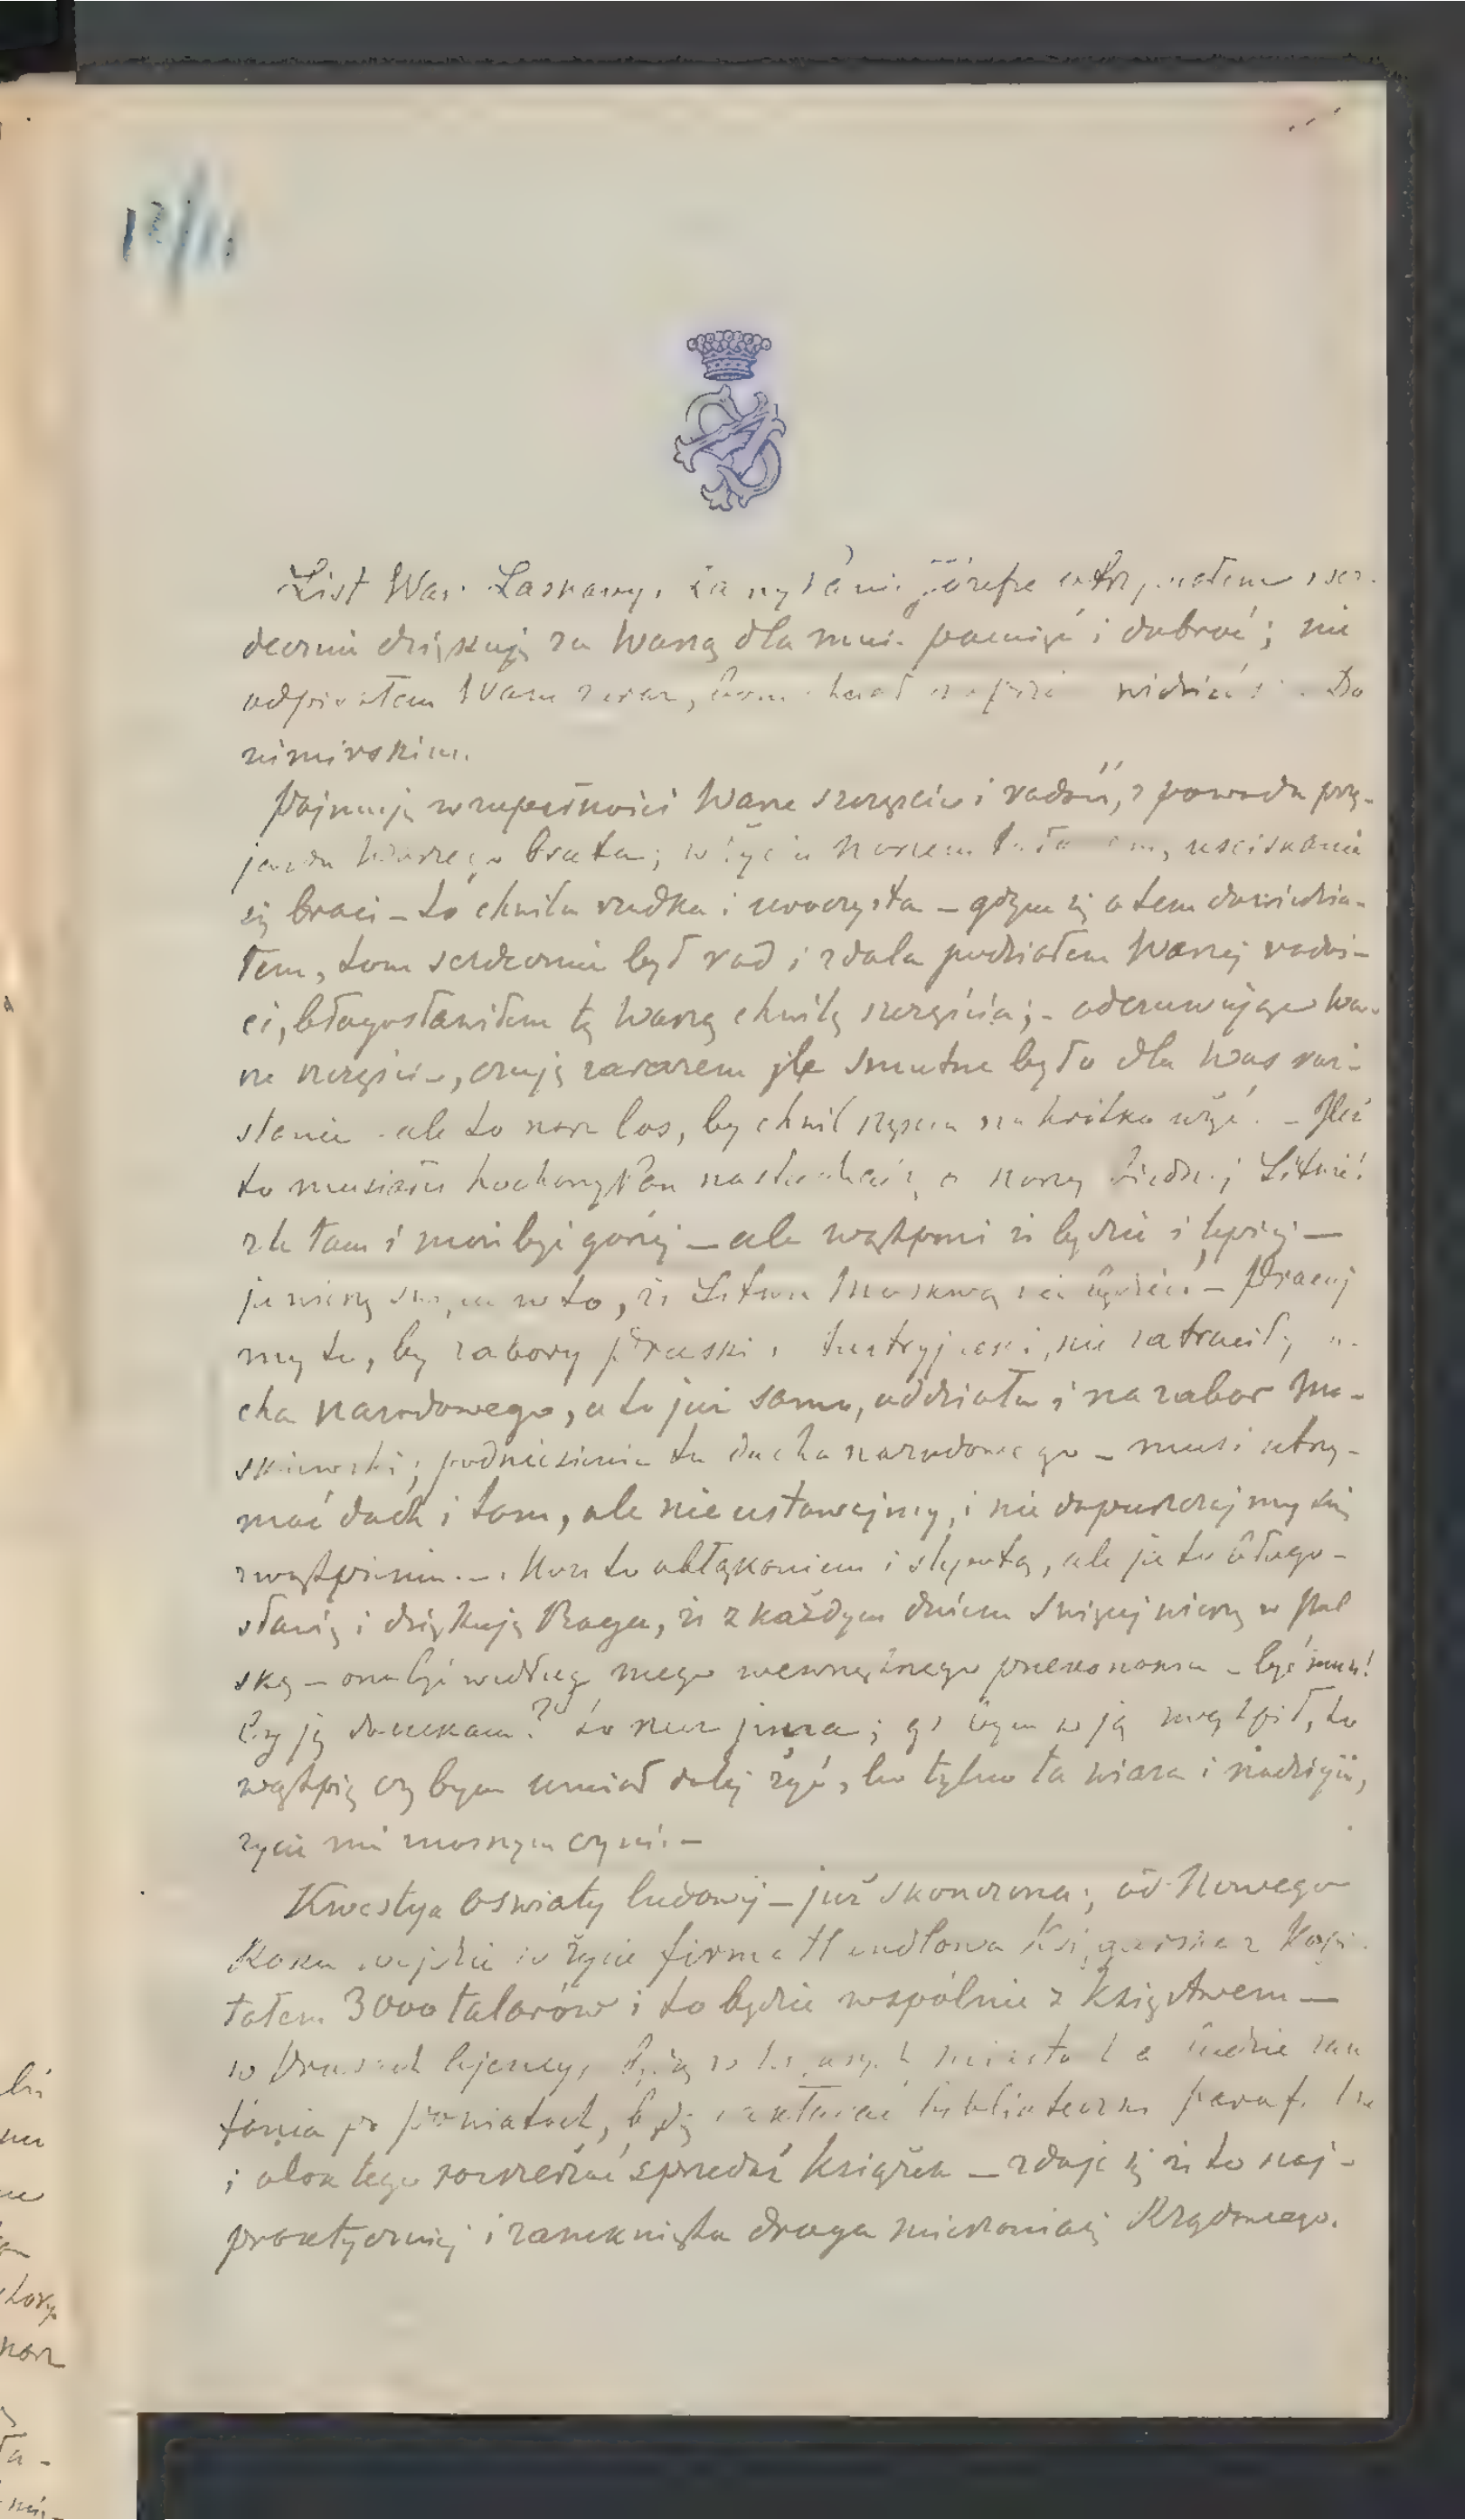 12/11
List Wasz Łaskawy, Kochany Panie Józefie otrzymałem i ser-
decznie dziękuję za Waszą dla mnie pamięć i dobroć; nie
odpisałem Wam zaraz, bom chciał widzieć się z Do
nimirskim.
Pojmuję w zupełności Wasze szczęście i radość, z powodu przy-
jazdu Waszego brata; w życiu naszem uściskanie
się braci – to chwila rzadka i uroczysta – gdym się o tem dowiedzia-
łem, tom serdecznie był rad i zdala podziałem Waszej rados-
ci, błogosławiłem tę Waszą chwilę szczęścia; – odczuwając Wa-
sze szczęście, czuję zarazem jle smutne było dla Was roz-
stanie – ale to nasz los, by chwil szczęścia na krótko użyć. – Jleż
to musiałeś Kochany Pan nasłuchać się o naszej biednej Litwie!
źle tam i może być gorzej – ale wątpmi iż będzie i lepiej –
ja wierzę w to, iż Litwa Moskwą nie będzie – Pracuj
my tu, by zabory Pruski i Austryjacki, nie zatraciły du-
cha narodowego, a to już samo, oddziała i na zabor Mo-
skiewski; podniesienie tu ducha narodowego – musi utrzy-
mać duch i tam, ale nie ustawajmy, i nie dopuszczajmy się
zwątpienia. – Zwą to obłąkaniem i ślepotą, ale ja to błogo-
sławię i dziękuję Bogu, iż z każdym dniem święciej wierzę w Pol
skę – ona być według mego wewnętrznego przekonania – być musi!
Czy ją doczekam? to rzecz jnna; gdybym w ją zwątpił, to
wątpię czy bym umiał dalej żyć, bo tylko ta wiara i nadzieja,
życie mi możnym czyni. –
Kwestya Oswiaty ludowej – już skonczona; od Nowego
Roku wejdzie w życie firma Handlowa Księgarska z Kapi-
tałem 3000 talarów i to będzie wspólnie z Księstwem –
w Prusach będą w miastach a będzie
po powiatach, będą zakładać biblioteczki paraf.
i obok tego rozszerzać sprzedaż książek – zdaje się iż to naj-
praktyczniej i zamknięta droga mieszaniaj Rządowego.